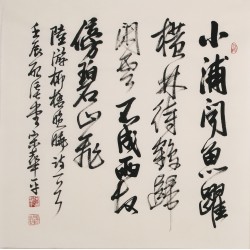 小浦闻魚躍
橫林待鶴歸
闲雲不成雨故
傍碧山飛
陸游柳橋晚眺詩一首
壬辰 書 宋華平